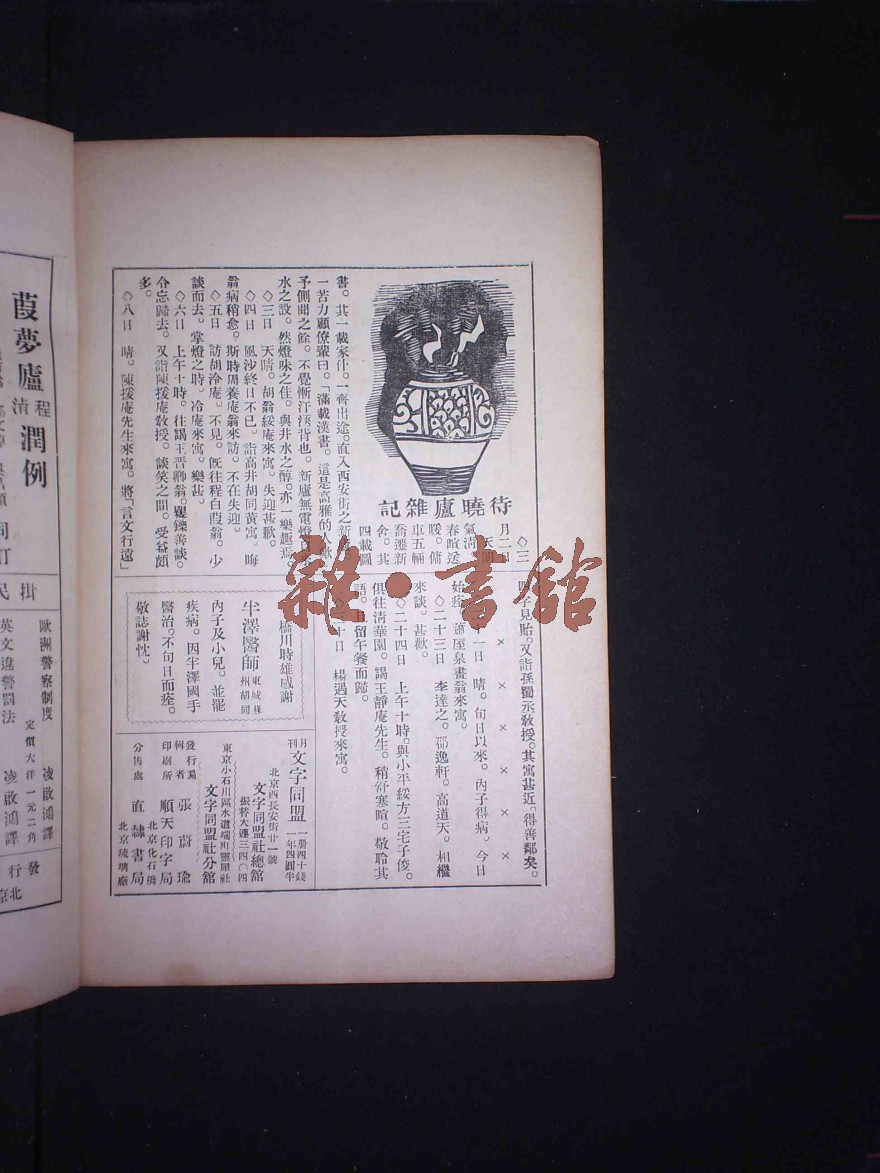 待曉廬雜記
◇三
月二日
天明
氣清
春暄送
暖。僱
車五輛
喬遷新
舍。其
四載圖
書。其一載家什。一齊出途。直入西安街之新
一苦力顧僚輩曰。「滿載漢書。這是高雅的人
予側聞之餘。不覺慚汗浹背也。新廬無電燈
水之設。然燈味之佳。與井水之醇。亦一樂趣焉
◇三日　天晴。胡翁綏庵來寓。失迎甚歉。
◇四日　風沙終日不已。詣高井胡同黃寓。晦
翁病稍愈。斯時周養庵翁來訪。不在失迎。
◇五日　訪胡冷庵。不見。旣往程白葭翁。少
談而去。掌燈之時。冷庵來寓。樂甚。
◇六日　上午十時。往謁王晋卿翁。矍鑠善談。
令忘歸去。又詣陳援庵敎授。談笑之間。受益頗
多。
◇八日　晴。陳援庵先生來寓。將「言文行遠」
四字見貽。又詣孫蜀丞敎授。其寓甚近「得善鄰矣。
×　×　×　×　×　×
十一日　晴。旬日以來。內子得病。今日
始痊。蕭屋泉畫翁來寓。
◇二十三日　李達之。邵逸軒。高道天。相繼
來談。甚歡。
◇二十四日　上午十時。與小平綏方三宅子俊。
俱往淸華園。謁王靜庵先生。稍舒寒暄。敬聆其
語。且留午餐而歸。
十日　楊遇夫敎授來寓。
橋川時雄感謝
半澤醫師　東城椿
州胡同
內子及小兒。並罹
疾病。因半澤國手
醫治。不旬日而痊。
敬誌謝忱。
月刊　文字同盟　一册四十錢
一年四圓半
北京西長安街廿一號
文字同盟社總館
振替大連三四〇四
東京小石川區水道端町靈犀社
文字同盟社分館
發行兼
輯者　張蔚瑜
北京化石橋
印刷所　順天印字局
分售處　直隸書局
北京琉璃廠
葭夢廬　程淯　潤例
同訂
歐洲警察制度　凌啟鴻譯
定價大洋一元二角
英文違警罰法　凌啟鴻譯
發行
雜・書館